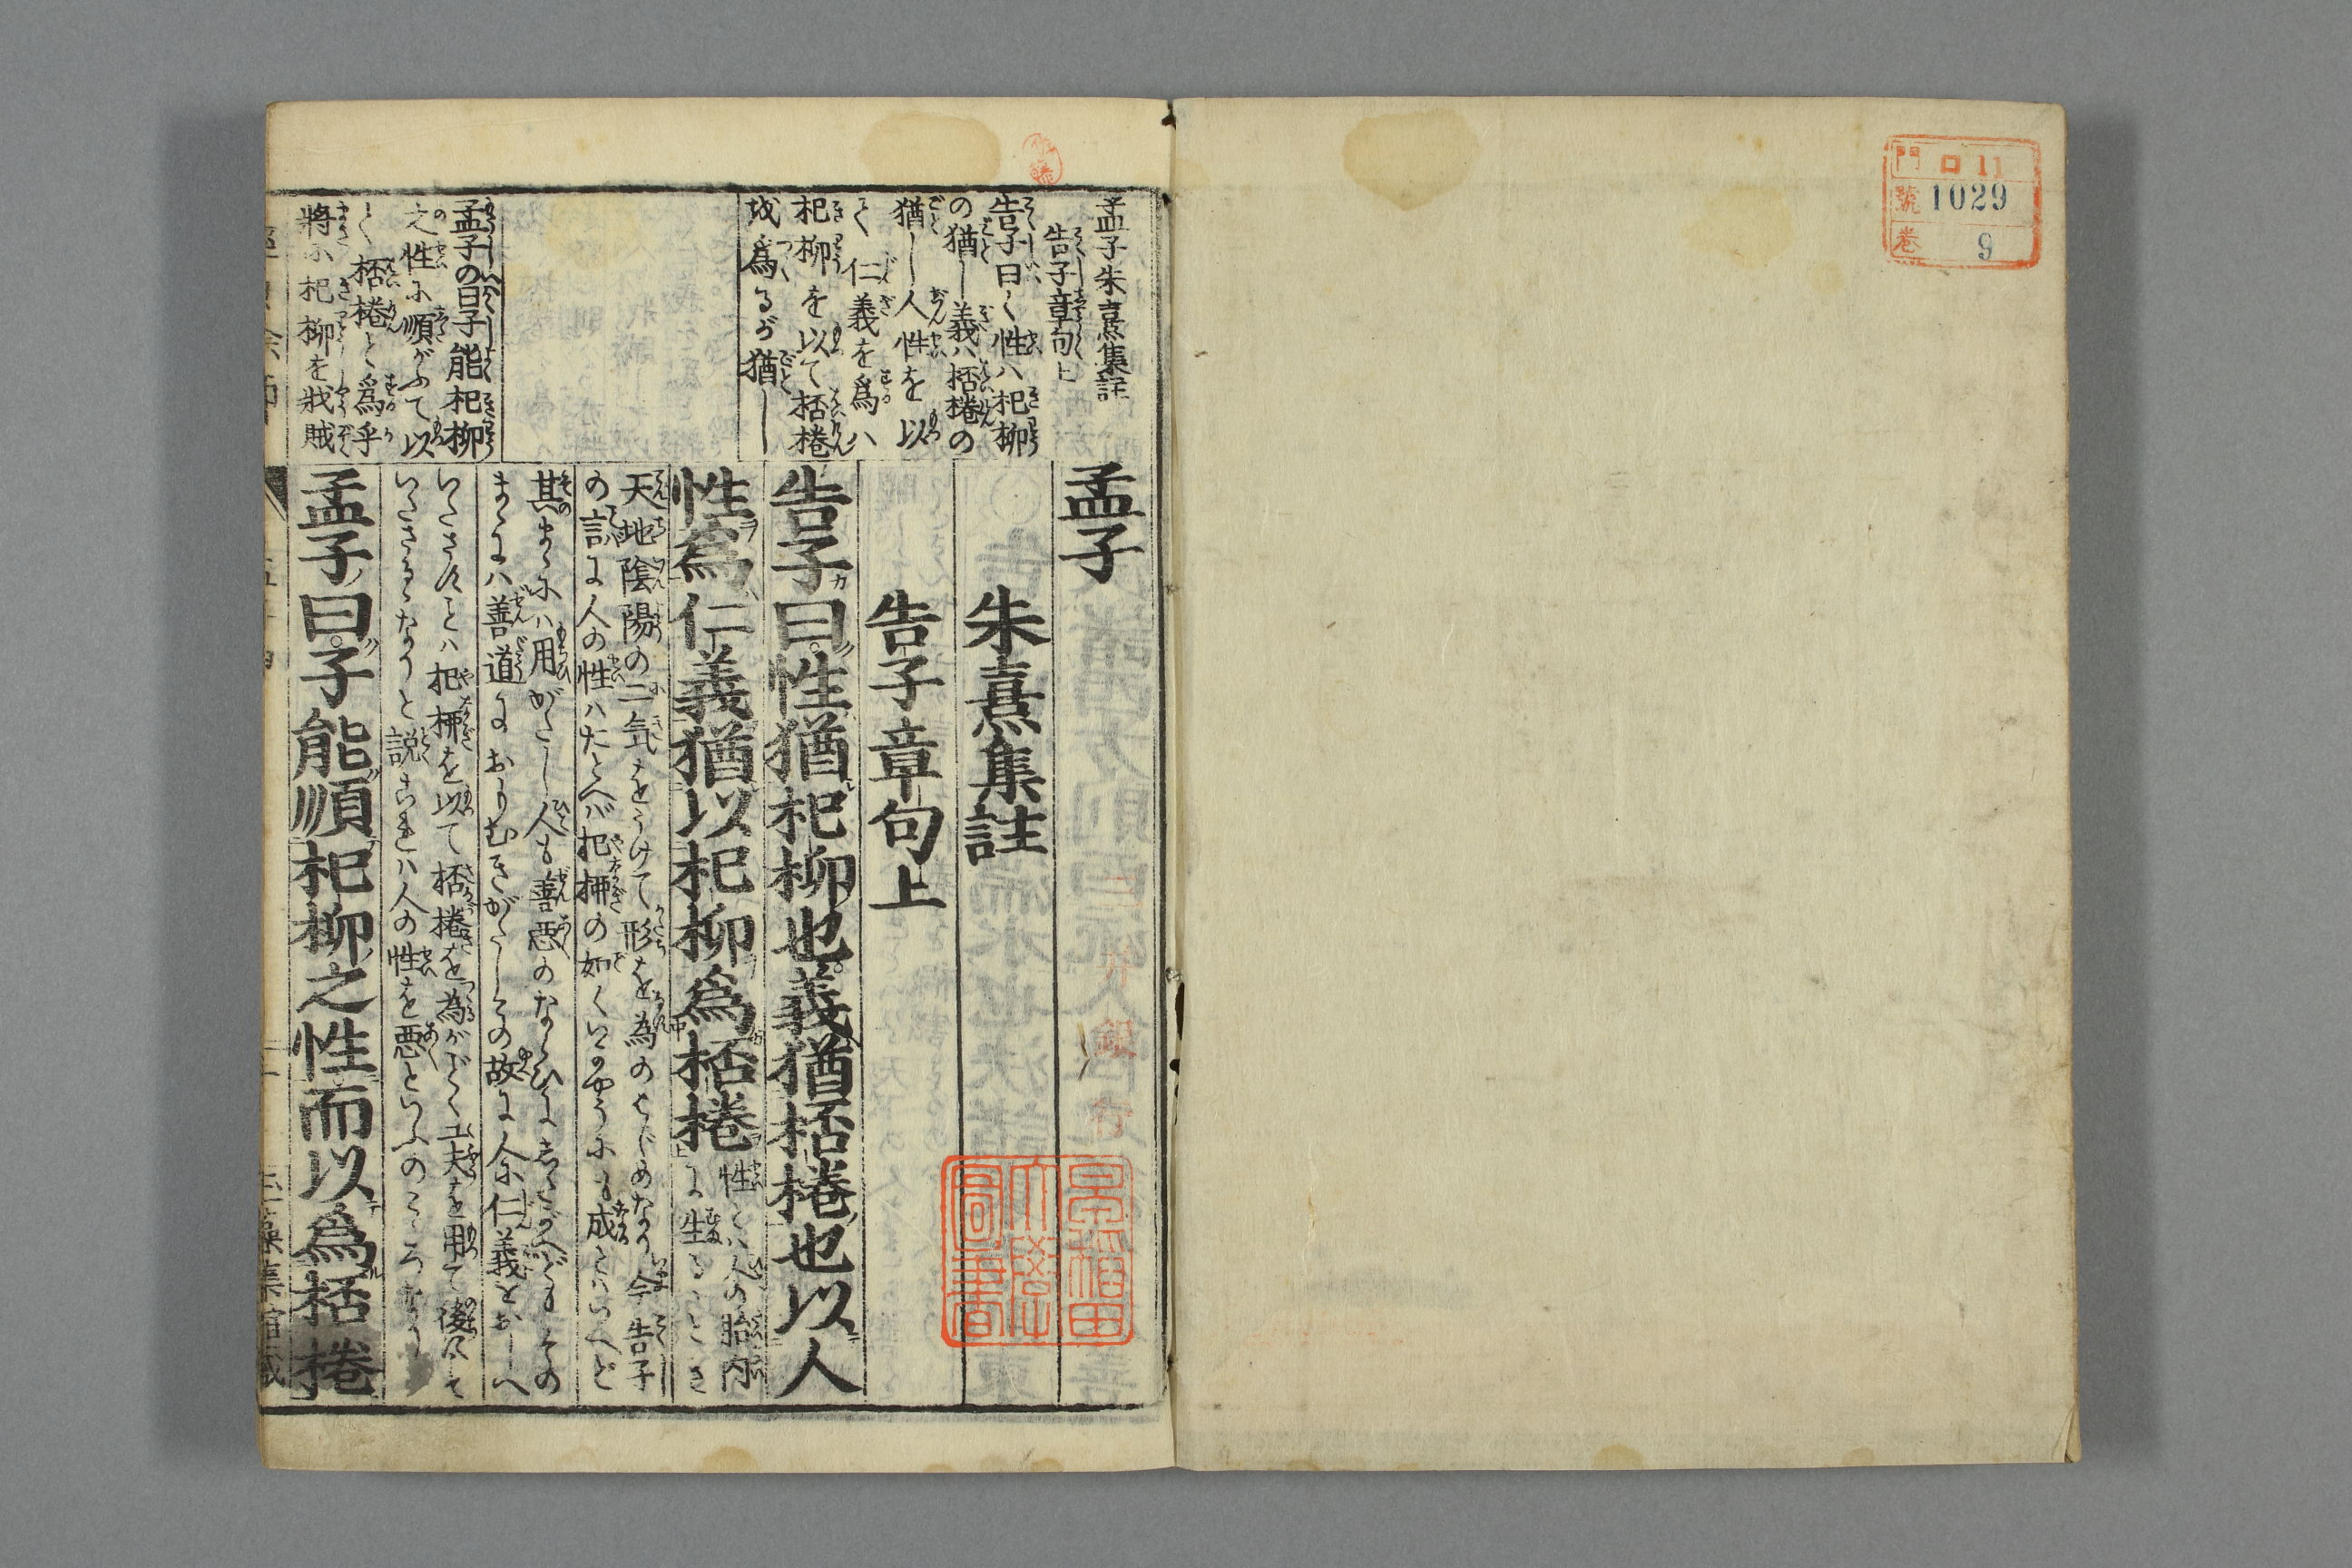 門 ロ 11
號 1029
卷 9
孟子朱熹集註
告子章句上
告子曰く性ハ杞柳
の猶し義ハ桮棬の
猶し人性を以
て仁義を爲ハ
杞柳を以て桮棬
を爲るが猶し
孟子の曰子能杞柳
之性に順がふて以
て桮棬を爲乎
將に杞柳を戕賊
孟子
朱熹集註
告子章句上
告子曰性猶杞柳也義猶桮棬也以人
性爲仁義猶以杞柳爲桮棬
性とハ人の胎内
に生るゝとき
天地陰陽の二気をうけて形を為のはじめなり今告子
の言に人の性ハたとへバ杞柳の如くいかやうにも成とハいへど
其まゝにハ用がたし人も善悪のならひにしたがへどもその
まゝにハ善道におもむきがたしその故に人に仁義をおしへ
杞柳を以て桮棬を為がごく工夫を用て後
なりと説これハ人の性を悪といふのこゝろなり
孟子曰子能順杞柳之性而以爲桮棬
早稲田
大學
圖書